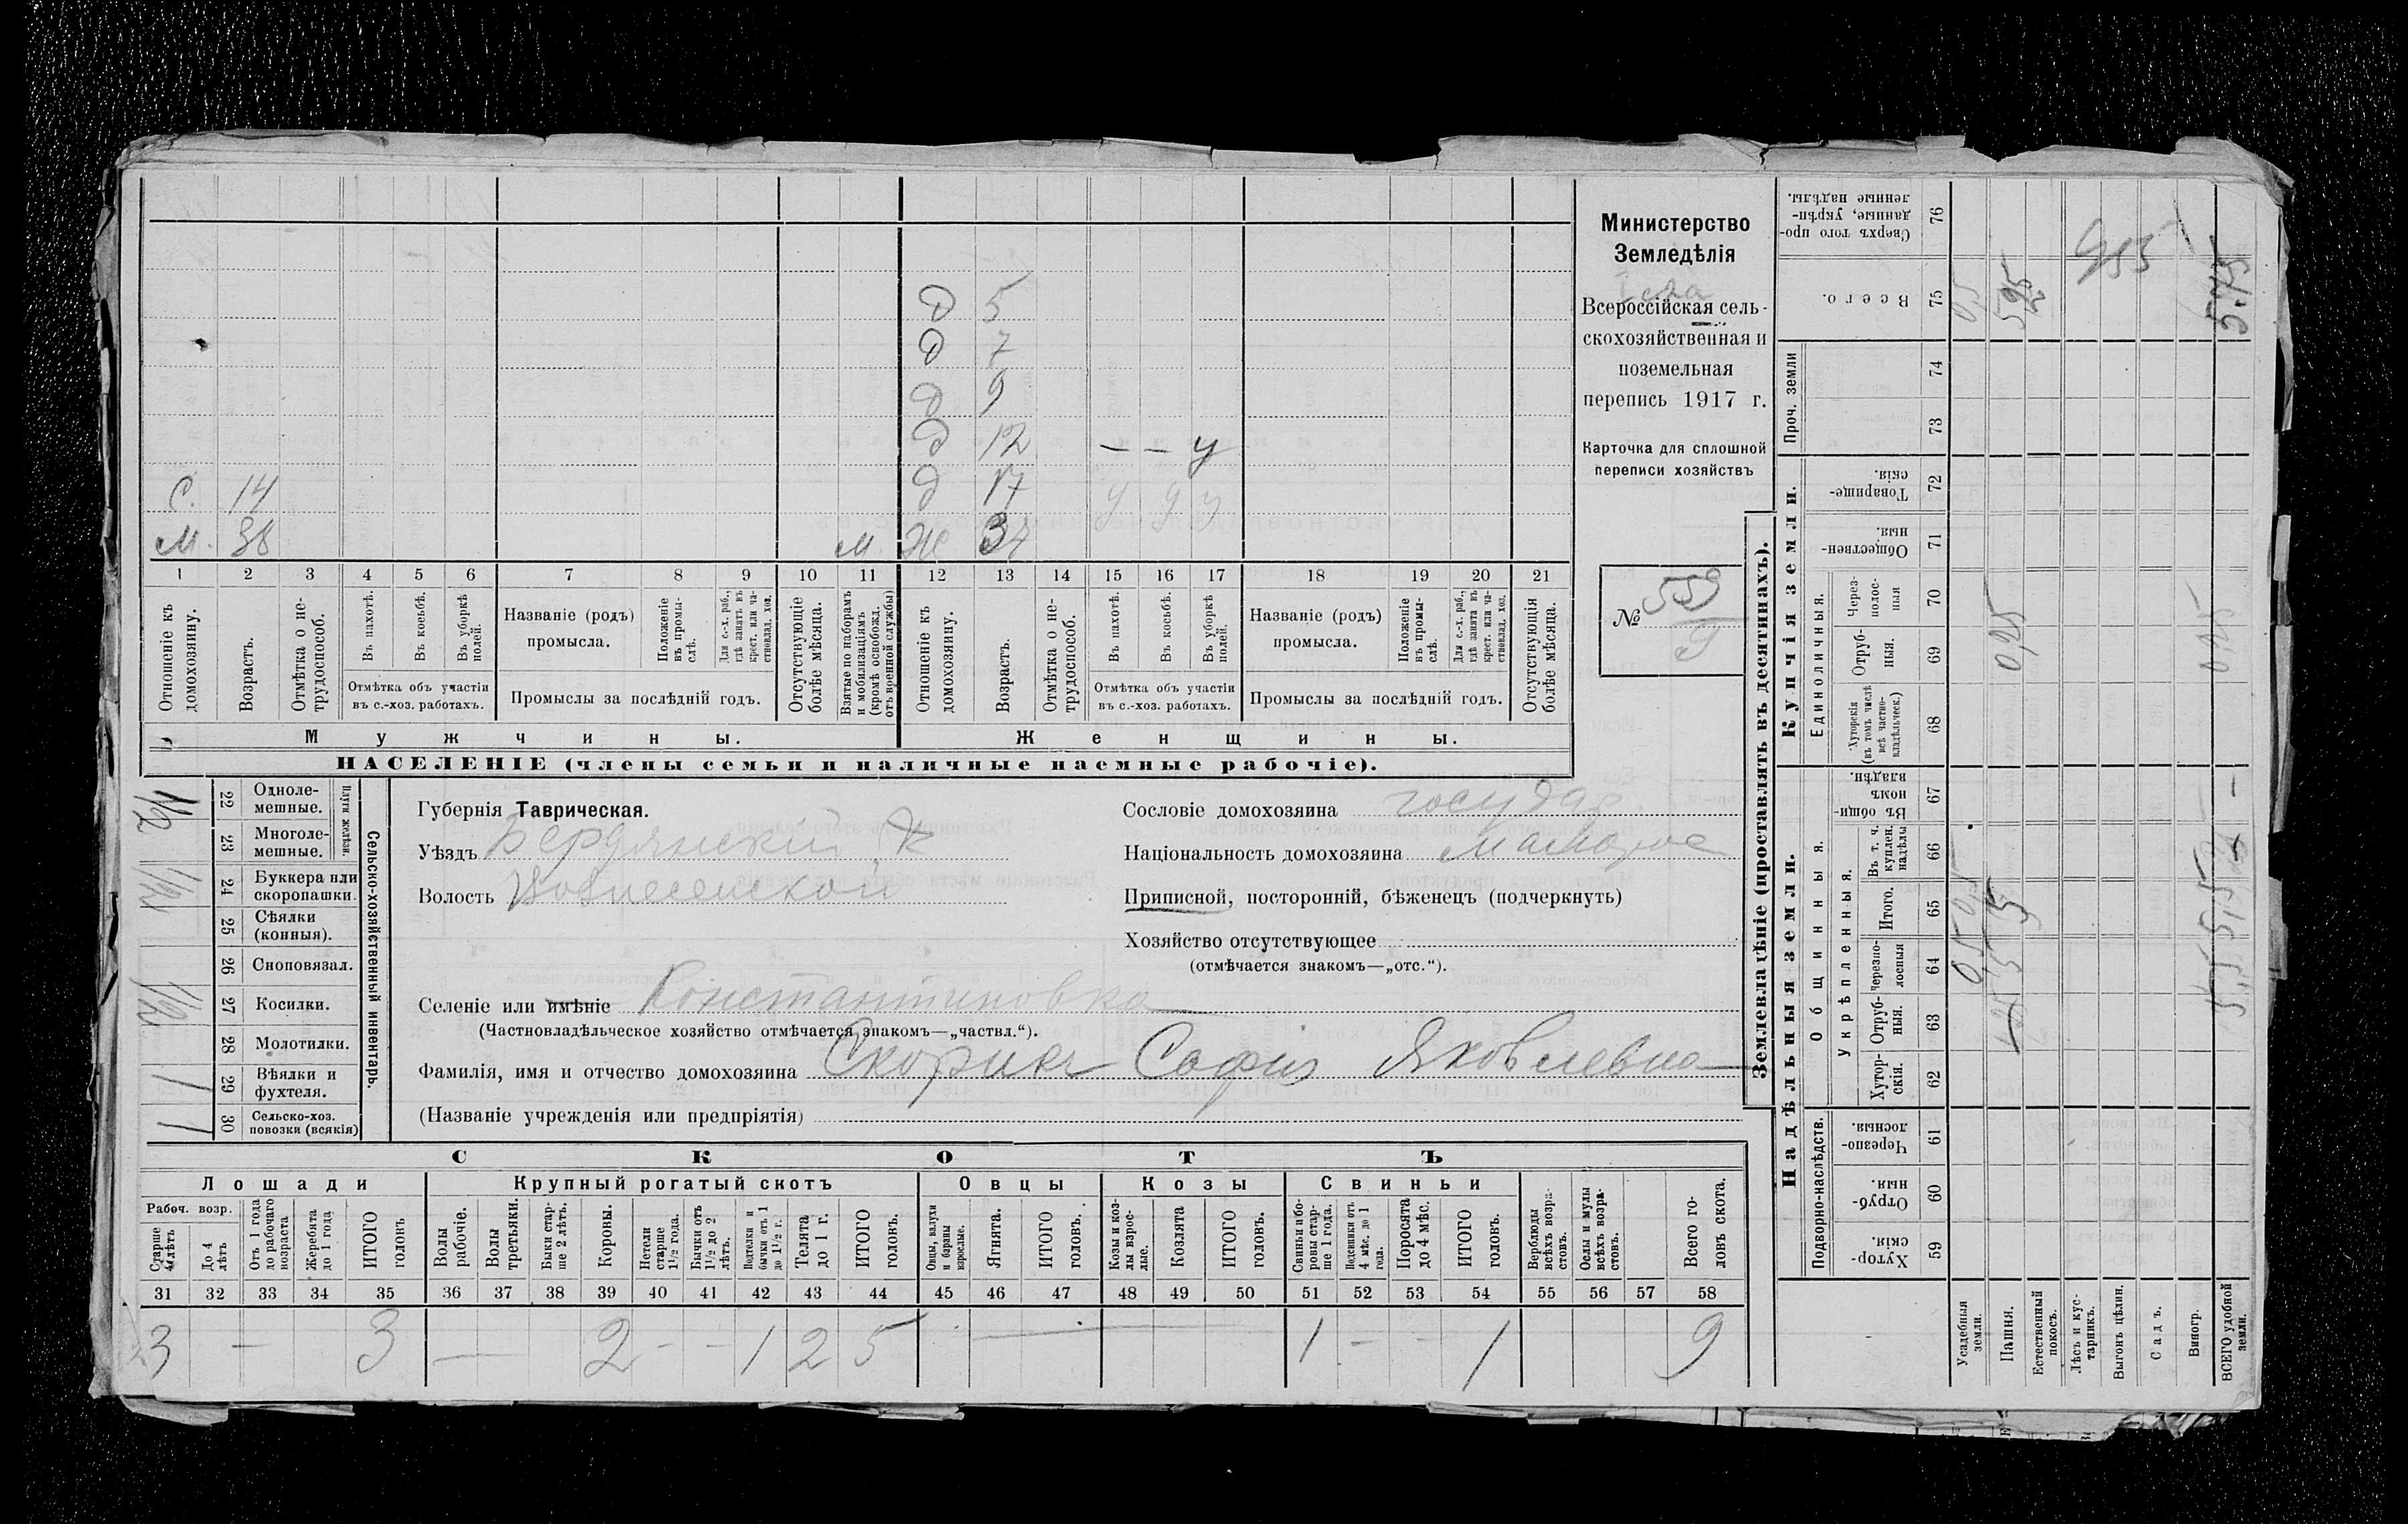 Министерство
Земледѣлія
Всероссійская сель-
скохозяйственная и
поземельная
перепись 1917 г.
Карточка для сплошной
переписи хозяйствъ
№ 559
9
Д 5
Д 7
Д 9
Д 12 — — у
С. 14 Д 17 у у у
М. 38 М. Ж 37
1 2 3 4 5 6 7 8 9 10 11 12 13 14 15 16 17 18 19 20 21
Отношеніе къ домохозяину.
Возрастъ.
Отмѣтка о не-трудоспособ.
Въ пахотѣ.
Въ косьбѣ.
Въ уборкѣ полей.
Отмѣтка объ участіи
въ с.-хоз. работахъ.
Названіе (родъ)
промысла.
Положеніе въ промы-слѣ.
Для с.-х. раб., гдѣ занятъ въ крест. или ча-стновлад. хоз.
Промыслы за послѣдній годъ.
Отсутствующіе болѣе мѣсяца.
Взятые по наборамъ и мобилизаціямъ (кромѣ освобожд. отъ военной службы)
Отношеніе къ домохозяину.
Возрастъ.
Отмѣтка о не-трудоспособ.
Въ пахотѣ.
Въ косьбѣ.
Въ уборкѣ полей.
Отмѣтка объ участіи
въ с.-хоз. работахъ.
Названіе (родъ)
промысла.
Положеніе въ промы-слѣ.
Для с.-х. раб., гдѣ занятъ въ крест. или ча-стновлад. хоз.
Промыслы за послѣдній годъ.
Отсутствующія болѣе мѣсяца.
Мужчины. Женщины.
НАСЕЛЕНІЕ (члены семьи и наличные наемные рабочіе).
22 Одноле-мешные.
23 Многоле-мешные.
Плуги желѣзн.
24 Буккера или скоропашки.
25 Сѣялки (конныя).
26 Сноповязал.
27 Косилки.
28 Молотилки.
29 Вѣялки и фухтеля. 1
30 Сельско-хоз. повозки (всякія) 1
Сельско-хозяйственный инвентарь.
Губернія Таврическая.
Уѣздъ Бердянскій
Волость Вознесенской
Селеніе или имѣніе Константиновка
(Частновладѣльческое хозяйство отмѣчается знакомъ—„частвл.“).
Фамилія, имя и отчество домохозяина Скорикъ Софія Яковлевна
(Названіе учрежденія или предпріятія)
Сословіе домохозяина государ.
Національность домохозяина малорос
Приписной, посторонній, бѣженецъ (подчеркнуть)
Хозяйство отсутствующее
(отмѣчается знакомъ—„отс.“).
СКОТЪ
Лошади Крупный рогатый скотъ Овцы Козы Свиньи
Рабоч. возр.
Старше 4 лѣтъ
До 4 лѣтъ
Отъ 1 года до рабочаго возраста
Жеребята до 1 года
ИТОГО головъ
Волы рабочіе.
Волы третьяки.
Быки стар-ше 2 лѣтъ.
Коровы.
Нетели старше 1½ года.
Бычки отъ 1½ до 2 лѣтъ.
Подтелки и бычки отъ 1 до 1½ г.
Телята до 1 г.
ИТОГО головъ.
Овцы, валухи и бараны взрослые.
Ягнята.
ИТОГО головъ.
Козы и коз-лы взрос-лые.
Козлята
ИТОГО головъ.
Свиньи и бо-ровы стар-ше 1 года.
Подсвинки отъ 4 мѣс. до 1 года.
Поросята до 4 мѣс.
ИТОГО головъ.
Верблюды всѣхъ возра-стовъ.
Ослы и мулы всѣхъ возра-стовъ.
Всего го-ловъ скота.
31 32 33 34 35 36 37 38 39 40 41 42 43 44 45 46 47 48 49 50 51 52 53 54 55 56 57 58
3 — 3 — 2 - - 1 2 5 — 1 - - 1 9
Землевладѣніе (проставлять въ десятинахъ).
Надѣльныя земли. Купчія земли. Проч. земли
Подворно-наслѣдств.
Общинныя.
Укрѣпленныя.
Единоличныя.
Хутор-скія. 59
Отруб-ныя. 60
Черезпо-лосныя. 61
Хутор-скія. 62
Отруб-ныя. 63
Черезпо-лосныя 64
Итого. 65
Въ т. ч. куплен. надѣлы 66
Въ общи-номъ владѣн. 67
Хуторскія (въ томъ числѣ всѣ частно-владѣльческ.) 68
Отруб-ныя. 69
Через-полос-ныя 70
Обществен-ныя. 71
Товарище-скія. 72
73
74
Всего. 75
Сверхъ того про-данные, укрѣп-ленные надѣлы. 76
Усадебныя земли. 0,5 0,5 0,5
Пашня. 5 5 0,25
Естественный покосъ.
Лѣсъ и кус-тарникъ.
Выгонъ цѣлин.
Садъ.
Виногр.
ВСЕГО удобной земли. 5,5 5,5 0,25 5,75